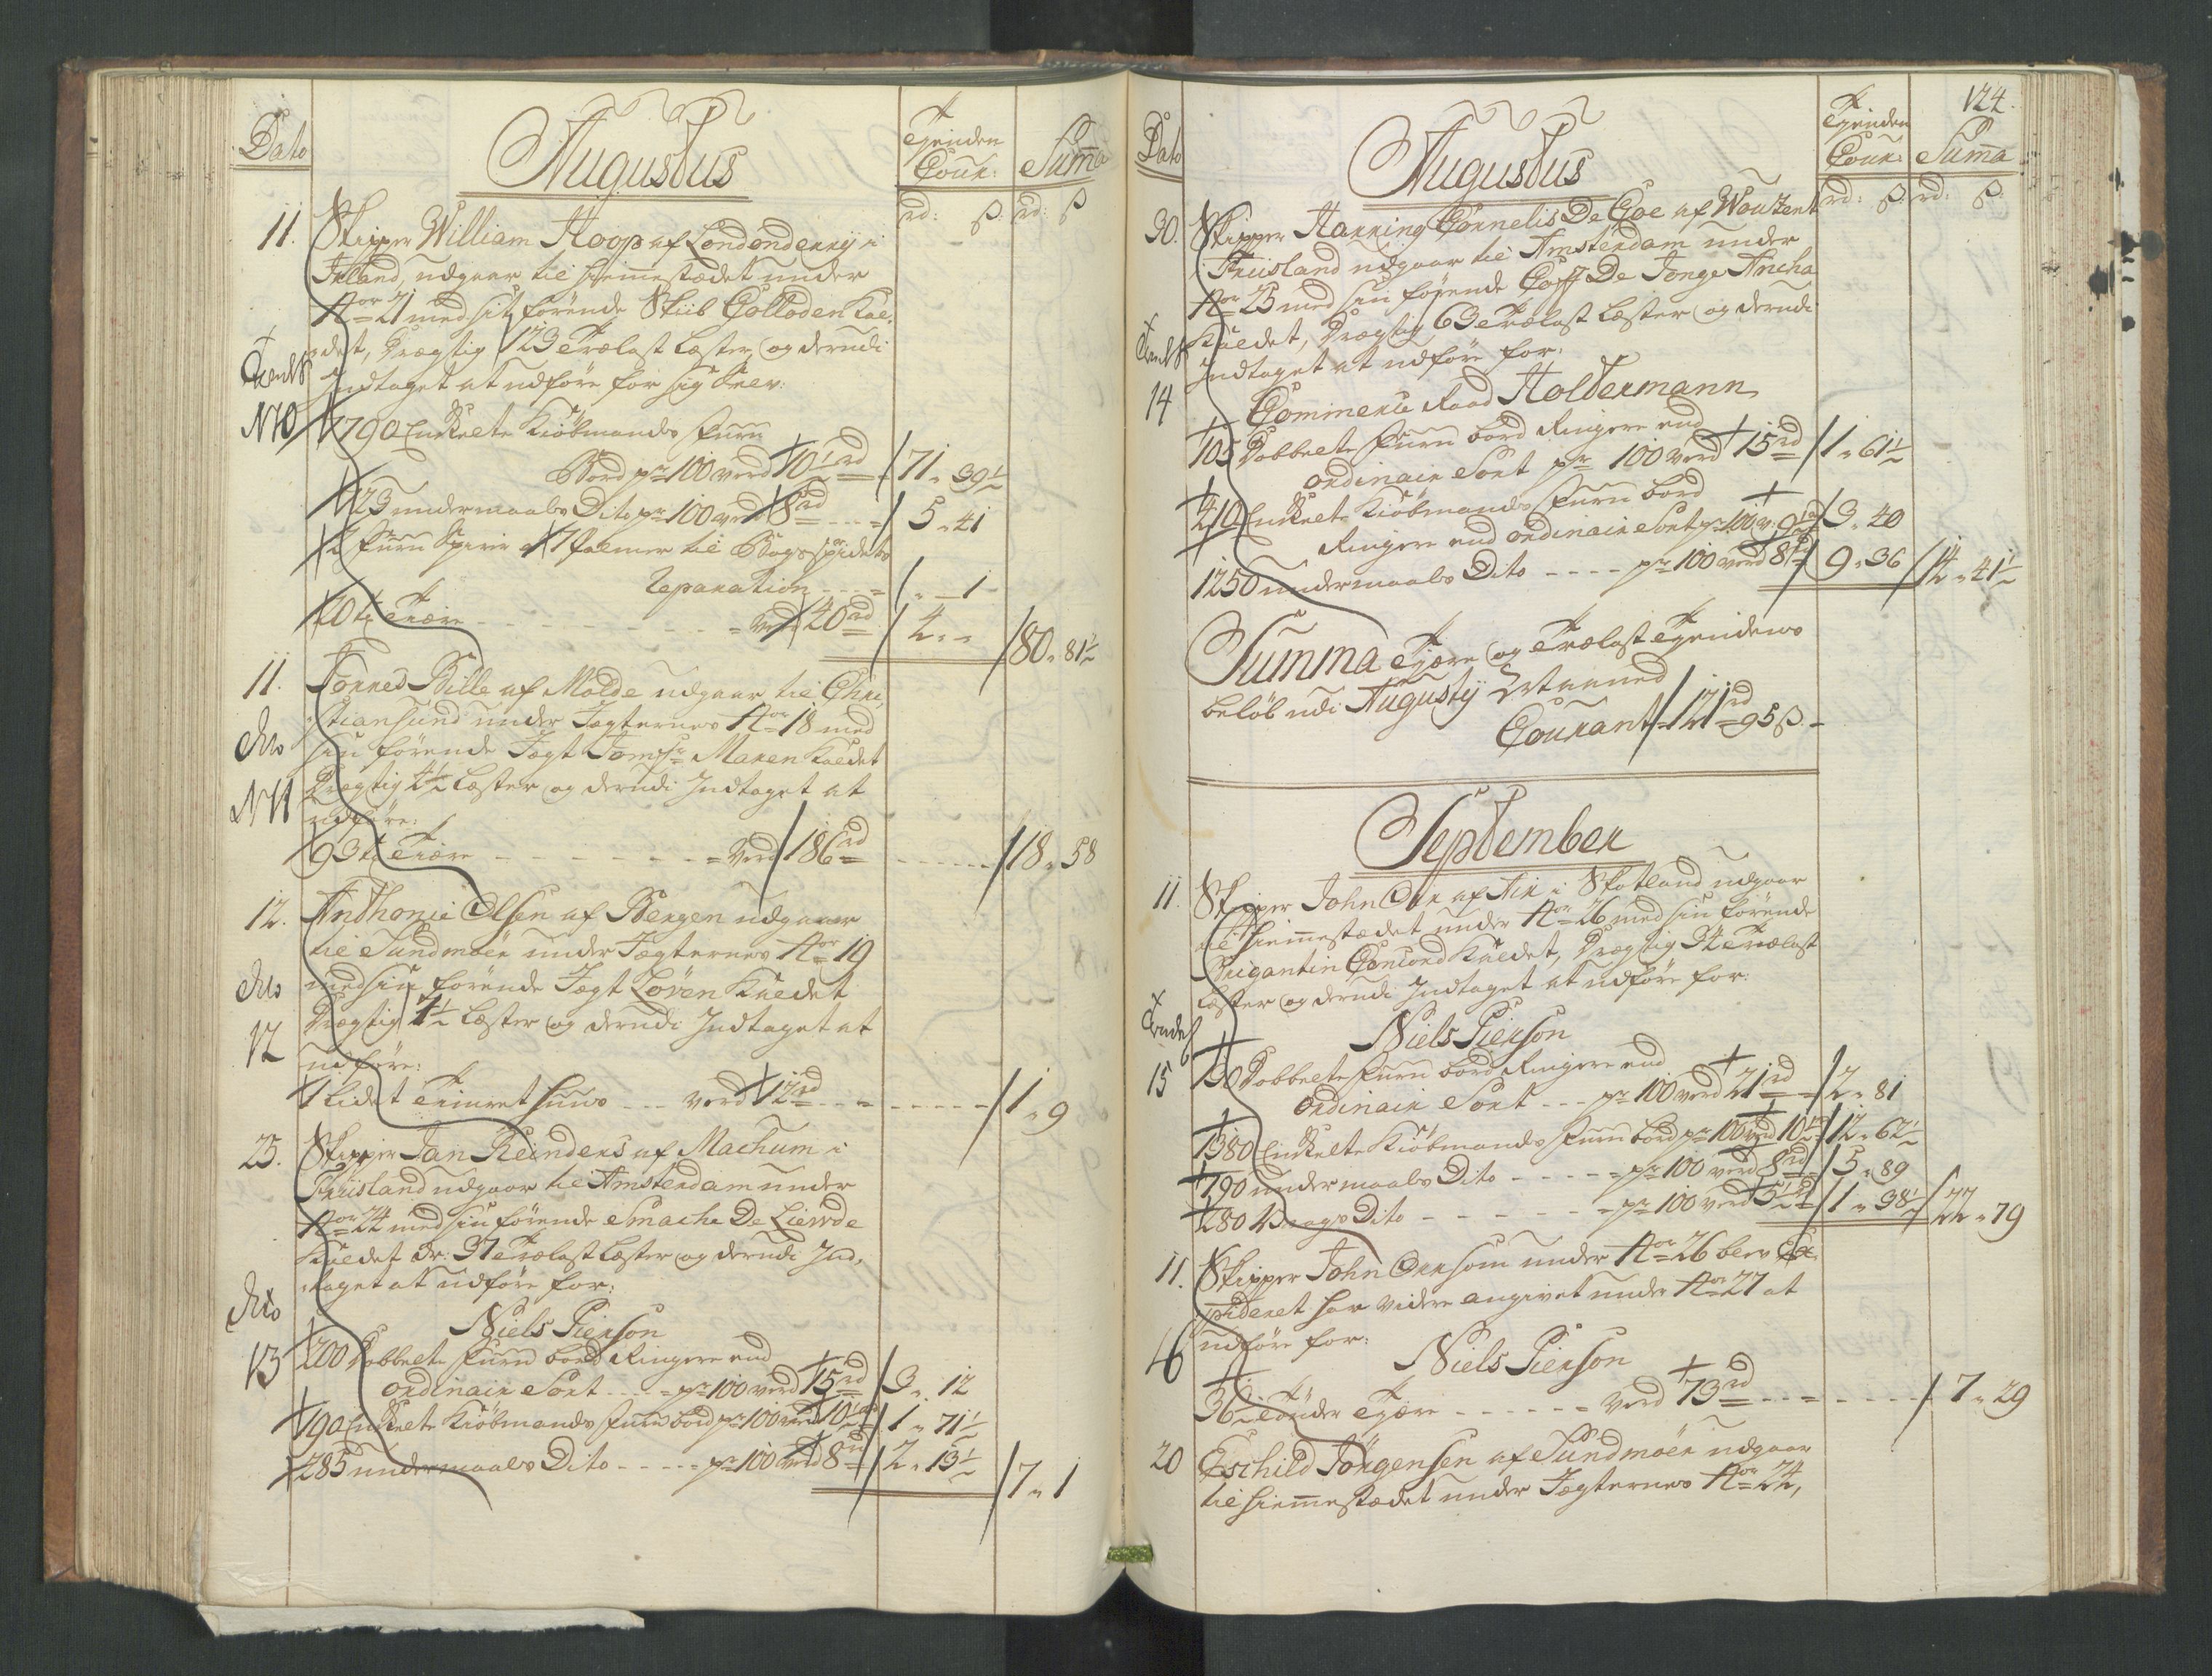 Dato
Augustus
Tjenden
Cour:
Summa
rd: ß: rd: ß
11. Skipper William Hoop af Londonderry i
Irland, udgaar til hiemmestædet under
No 21 med sit förende Skiib Golloden kal,
det, Drægtig 123 Trælast Læster og derudi
Indtaget at udföre for sig Selv:
N10
7790 Enkelte Kiöbmands Furu
Bord pr 100 verd 10½ rd 71 " 39½
723 undermaals Dito pr 100 verd 8 rd 5 " 41
1 Furu Spiir a 17 Palmer til Bogspridets
Reparation " 1
20 tr Tiære verd 40 rd 4 " " 80 " 81½
11. Torred Bille af Molde udgaar til Chri,
stiansund under Jagternes No 18 med
sin förende Jagt Jomfr Maren kaldet
Drægtig 4½ Læster og derudi Indtaget at
udföre:
dito
N11
93 tr Tiære verd 186 rd 18 " 58
12. Anthonie Olsen af Bergen udgaar
til Sundmöer under Jagternes No 19
med sin förende Jagt Löven kaldet
Drægtig 4½ Læster og derudi Indtaget at
udföre:
dito
12
1 Lidet Timret Huus verd 12 rd 1 " 9
25. Skipper Jan Reinders af Machum i
Friisland udgaar til Amsterdam under
No 24 med sin förende Smache De Liewde
kaldet Dr: 37 Trælast Læster og derudi Ind,
taget at udföre for:
dito
Niels Pierson
13
200 Dobbelte Furu bord Ringere end
ordinair Sort pr 100 verd 15 rd 3 " 12
190 Enkelte Kiöbmands Furu bord pr 100 verd 10½ rd 1 " 71½
285 undermaals Dito pr 100 verd 8 rd 2 " 13½ 7 " 1
124.
Dato
Augustus
Tjenden
Cour:
Summa
rd: ß: rd: ß:
30. Skipper Harring Cornelis De Goe af Woutzent
Friisland udgaar til Amsterdam under
No 25 med sin förende Coff De Jonge Ancha
kaldet, Drægtig 63 Trælast Læster og derudi
Indtaget at udföre for:
14
Commerce Raad Holdermann
105 Dobbelte Furu bord Ringere end
ordinair Sort pr 100 verd 15 rd 1 " 61½
410 Enkelt Kiöbmands Furu bord
Ringere end ordinair Sort pr 100 v: 9½ rd 3 " 40
1250 undermaals Dito pr 100 verd 8 rd 9 " 36 14 " 41½
Summa Tjære og Trælast Tjendens
belöb udi Augustij Maaned
Courant 121 rd 95 ß
September
11. Skipper John Orr af Air i Skotland udgaar
til hiemmestædet under No 26 med sin förende
Brigantin Concord kaldet, Drægtig 94 Trælast
Læster og derudi Indtaget at udföre for:
Niels Pierson
15
130 Dobbelte Furu bord Ringere end
ordinair Sort pr 100 verd 21 rd 2 " 81
1380 Enkelte Kiöbmands Furu bord pr 100 verd 10½ rd 12 " 62½
790 undermaals Dito pr 100 verd 8 rd 5 " 89
280 Vrags Dito pr 100 verd 5½ rd 1 " 38½ 22 " 79
11. Skipper John Orr som under No 26 blev Ex,
pideret har videre angivet under No 27 at
udföre for:
16
Niels Pierson
36½ Tönder Tjære verd 73 rd 7 " 29
20 Eschild Jörgensen af Sundmöer udgaar
til hiemmestædet under Jagternes No 24,